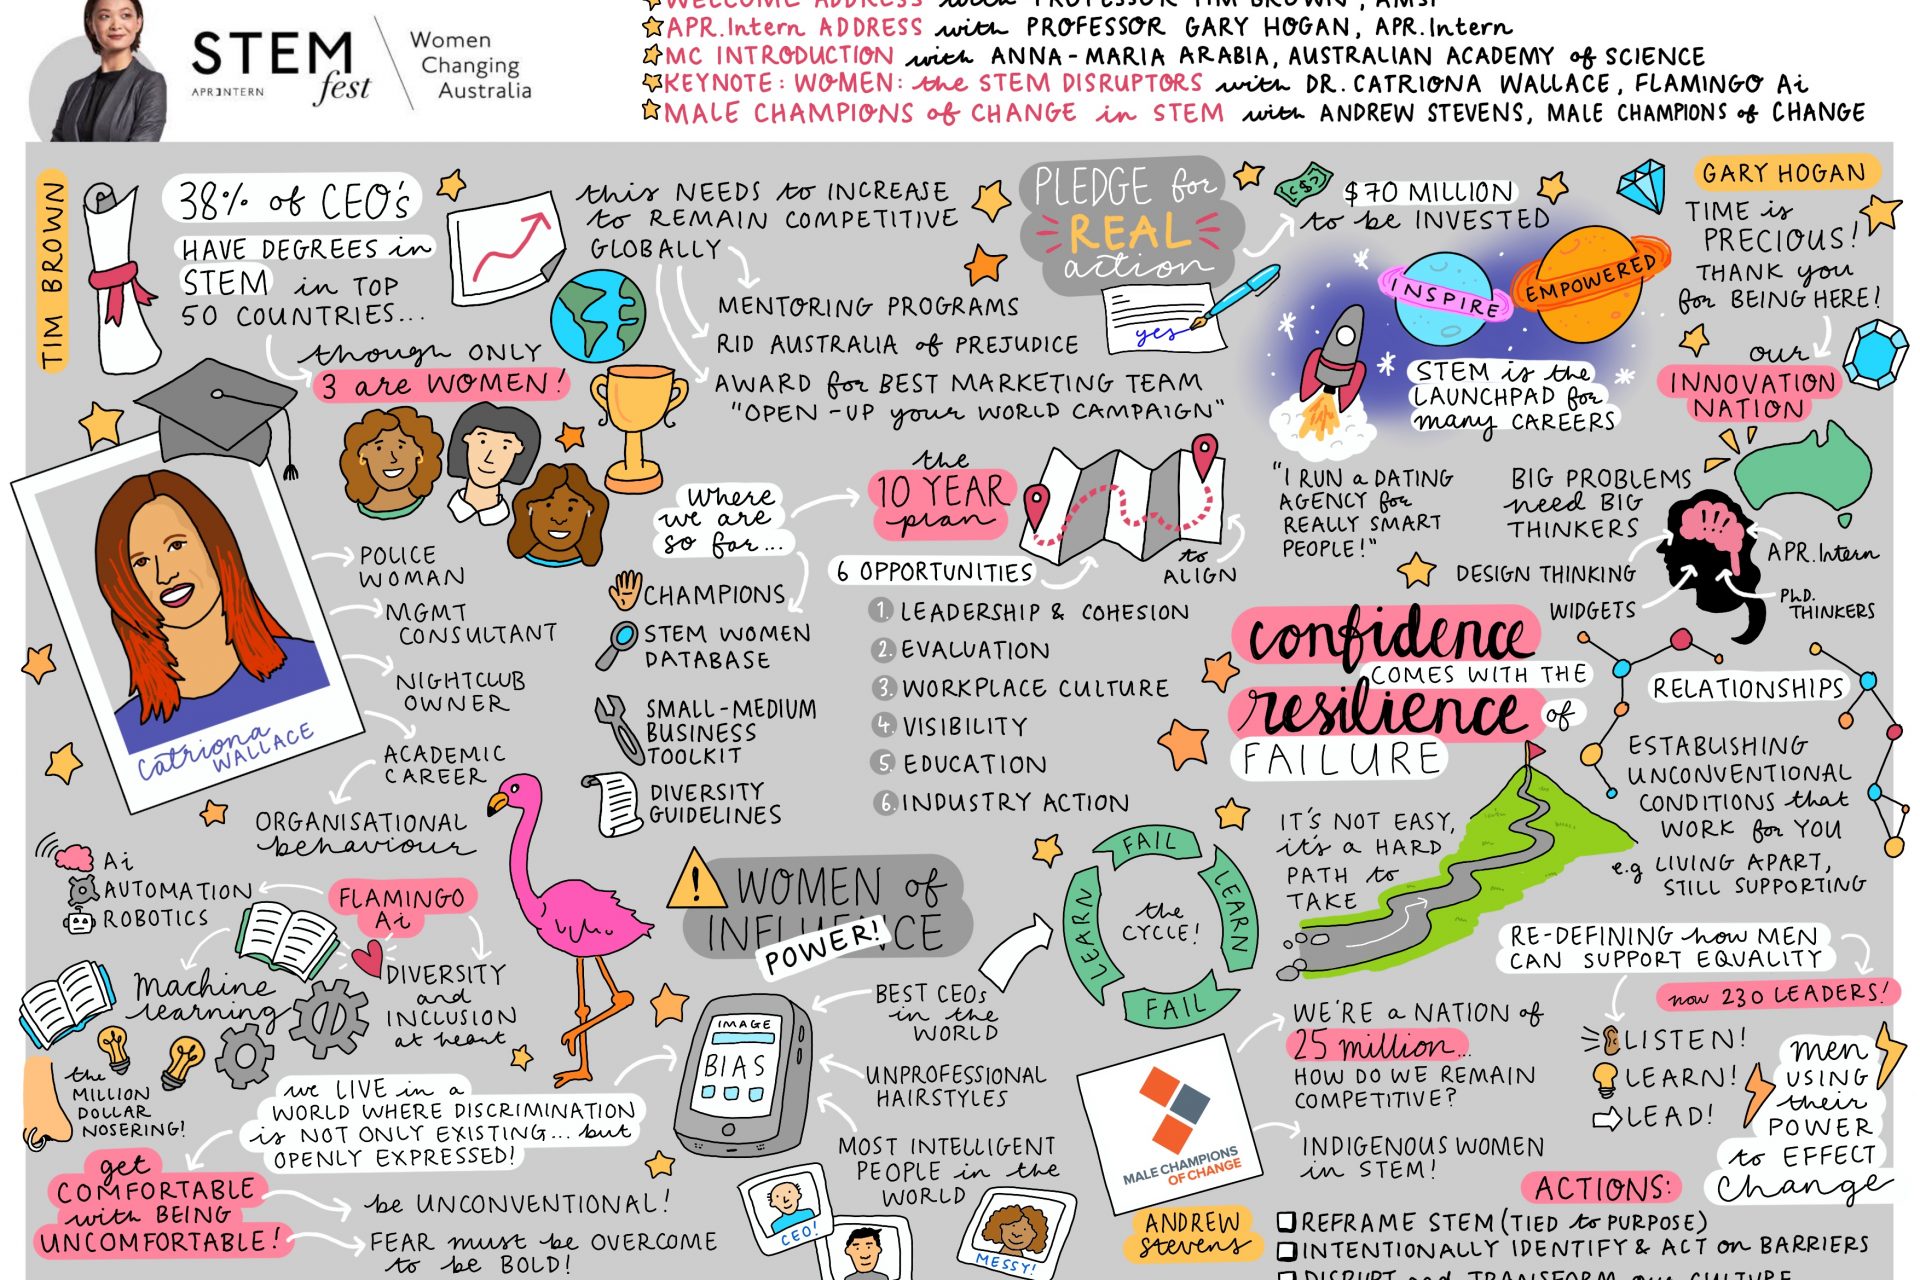 STEM
APR3NTERN
fest
Women
Changing
Australia
WELCOME ADDRESS with PROFESSOR TIM BROWN, AMSI
APR.Intern ADDRESS with PROFESSOR GARY HOGAN, APR.Intern
MC INTRODUCTION with ANNA-MARIA ARABIA, AUSTRALIAN ACADEMY of SCIENCE
KEYNOTE: WOMEN: the STEM DISRUPTORS with DR. CATRIONA WALLACE, FLAMINGO Ai
MALE CHAMPIONS of CHANGE in STEM with ANDREW STEVENS, MALE CHAMPIONS of CHANGE
TIM BROWN
38% of CEO's
HAVE DEGREES in
STEM in TOP
50 COUNTRIES...
though ONLY
3 are WOMEN!
this NEEDS to INCREASE
to REMAIN COMPETITIVE
GLOBALLY
MENTORING PROGRAMS
RID AUSTRALIA of PREJUDICE
AWARD for BEST MARKETING TEAM
"OPEN-UP your WORLD CAMPAIGN"
PLEDGE for
REAL
action
yes
$70 MILLION
to be INVESTED
INSPIRE
EMPOWERED
STEM is the
LAUNCHPAD for
many CAREERS
GARY HOGAN
TIME is
PRECIOUS!
THANK you
for BEING HERE!
our
INNOVATION
NATION
"I RUN a DATING
AGENCY for
REALLY SMART
PEOPLE!"
BIG PROBLEMS
need BIG
THINKERS
DESIGN THINKING
WIDGETS
APR.Intern
PhD.
THINKERS
Catriona
WALLACE
POLICE
WOMAN
MGMT
CONSULTANT
NIGHTCLUB
OWNER
ACADEMIC
CAREER
ORGANISATIONAL
behaviour
where
we are
so far...
CHAMPIONS
STEM WOMEN
DATABASE
SMALL-MEDIUM
BUSINESS
TOOLKIT
DIVERSITY
GUIDELINES
the
10 YEAR
plan
to
ALIGN
6 OPPORTUNITIES
1. LEADERSHIP & COHESION
2. EVALUATION
3. WORKPLACE CULTURE
4. VISIBILITY
5. EDUCATION
6. INDUSTRY ACTION
confidence
COMES WITH THE
resilience of
FAILURE
IT'S NOT EASY,
it's a HARD
PATH to
TAKE
RELATIONSHIPS
ESTABLISHING
UNCONVENTIONAL
CONDITIONS that
WORK for YOU
e.g LIVING APART,
STILL SUPPORTING
FLAMINGO
Ai
Ai
AUTOMATION
ROBOTICS
Machine
learning
DIVERSITY
and
INCLUSION
at heart
the
MILLION
DOLLAR
NOSERING!
WOMEN of
INFLUENCE
POWER!
IMAGE
BIAS
BEST CEOs
in the
WORLD
UNPROFESSIONAL
HAIRSTYLES
MOST INTELLIGENT
PEOPLE in the
WORLD
CEO!
MESSY!
FAIL
LEARN
FAIL
LEARN
the
CYCLE!
we LIVE in a
WORLD WHERE DISCRIMINATION
is NOT ONLY EXISTING... but
OPENLY EXPRESSED!
get
COMFORTABLE
with BEING
UNCOMFORTABLE!
be UNCONVENTIONAL!
FEAR must be OVERCOME
to be BOLD!
MALE CHAMPIONS
OF CHANGE
ANDREW
Stevens
WE'RE a NATION of
25 million...
HOW DO WE REMAIN
COMPETITIVE?
INDIGENOUS WOMEN
in STEM!
RE-DEFINING how MEN
CAN SUPPORT EQUALITY
now 230 LEADERS!
LISTEN!
LEARN!
LEAD!
men
USING
their
POWER
to EFFECT
Change
ACTIONS:
REFRAME STEM (TIED to PURPOSE)
INTENTIONALLY IDENTIFY & ACT on BARRIERS
DISRUPT and TRANSFORM our CULTURE